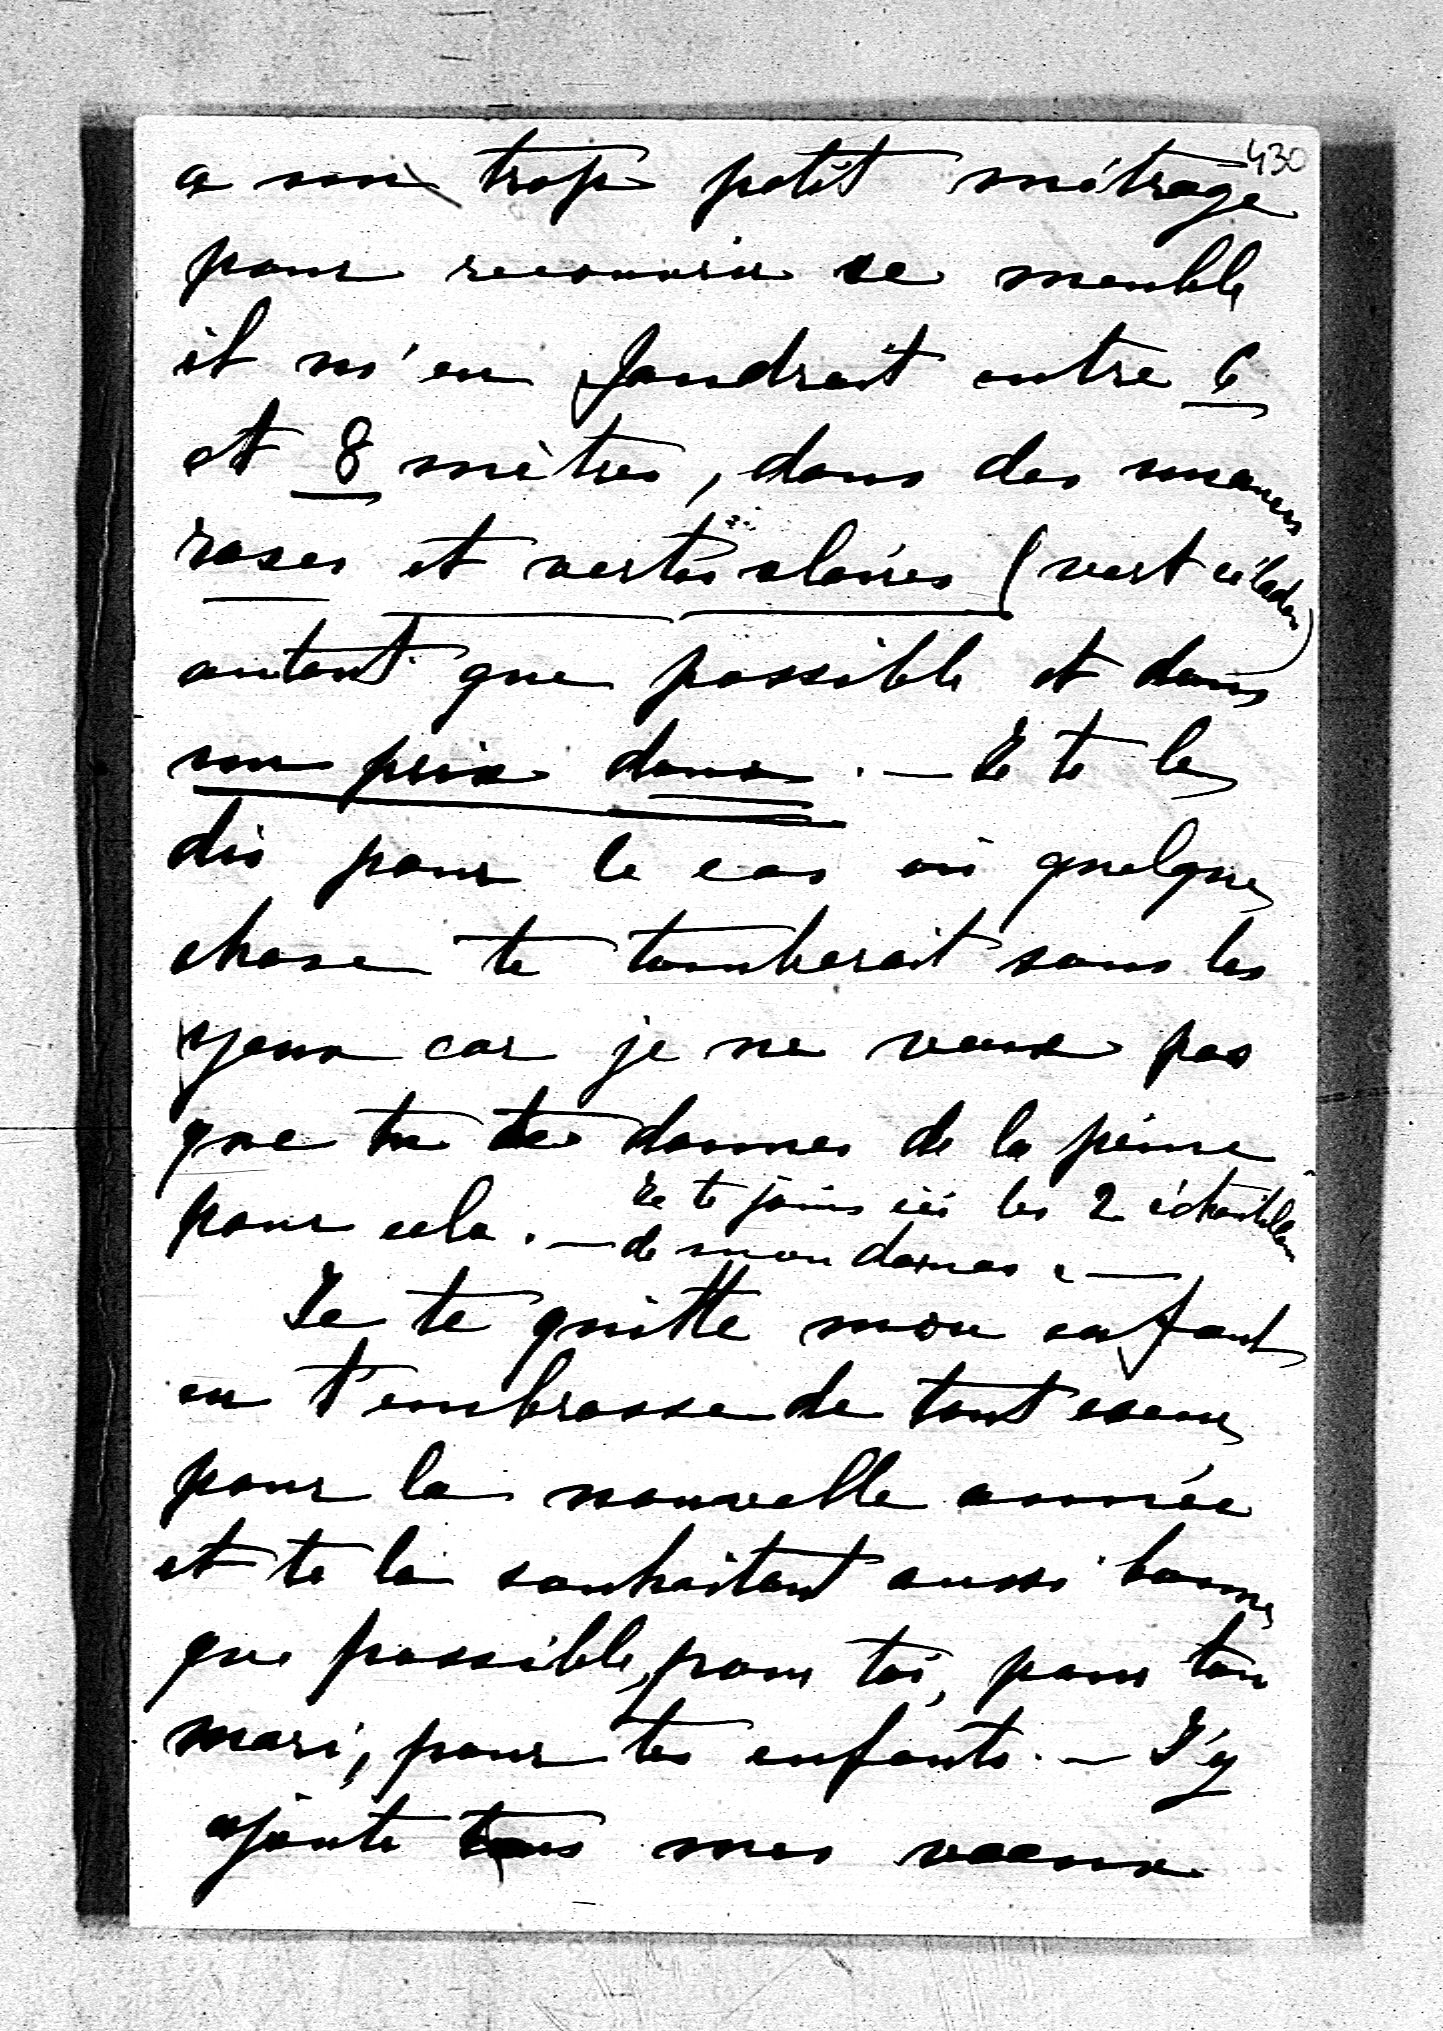 430
a un trop petit métrage
pour recouvrir ce meuble
il m'en faudrait entre 6
et 8 mètres, dans des nuances
roses et vertes claires (vert céladon)
autant que possible et dans
un prix doux. — Je te le
dis pour le cas où quelque
chose te tomberait sous les
yeux car je ne veux pas
que tu te donnes de la peine
pour cela. — Je te joins ici les 2 échantillons
de mon damas. —
Je te quitte mon enfant
en t'embrassant de tout coeur
pour la nouvelle année
et te la souhaitant aussi bonne
que possible, pour toi, pour ton
mari, pour tes enfants. — J'y
ajoute tous mes voeux